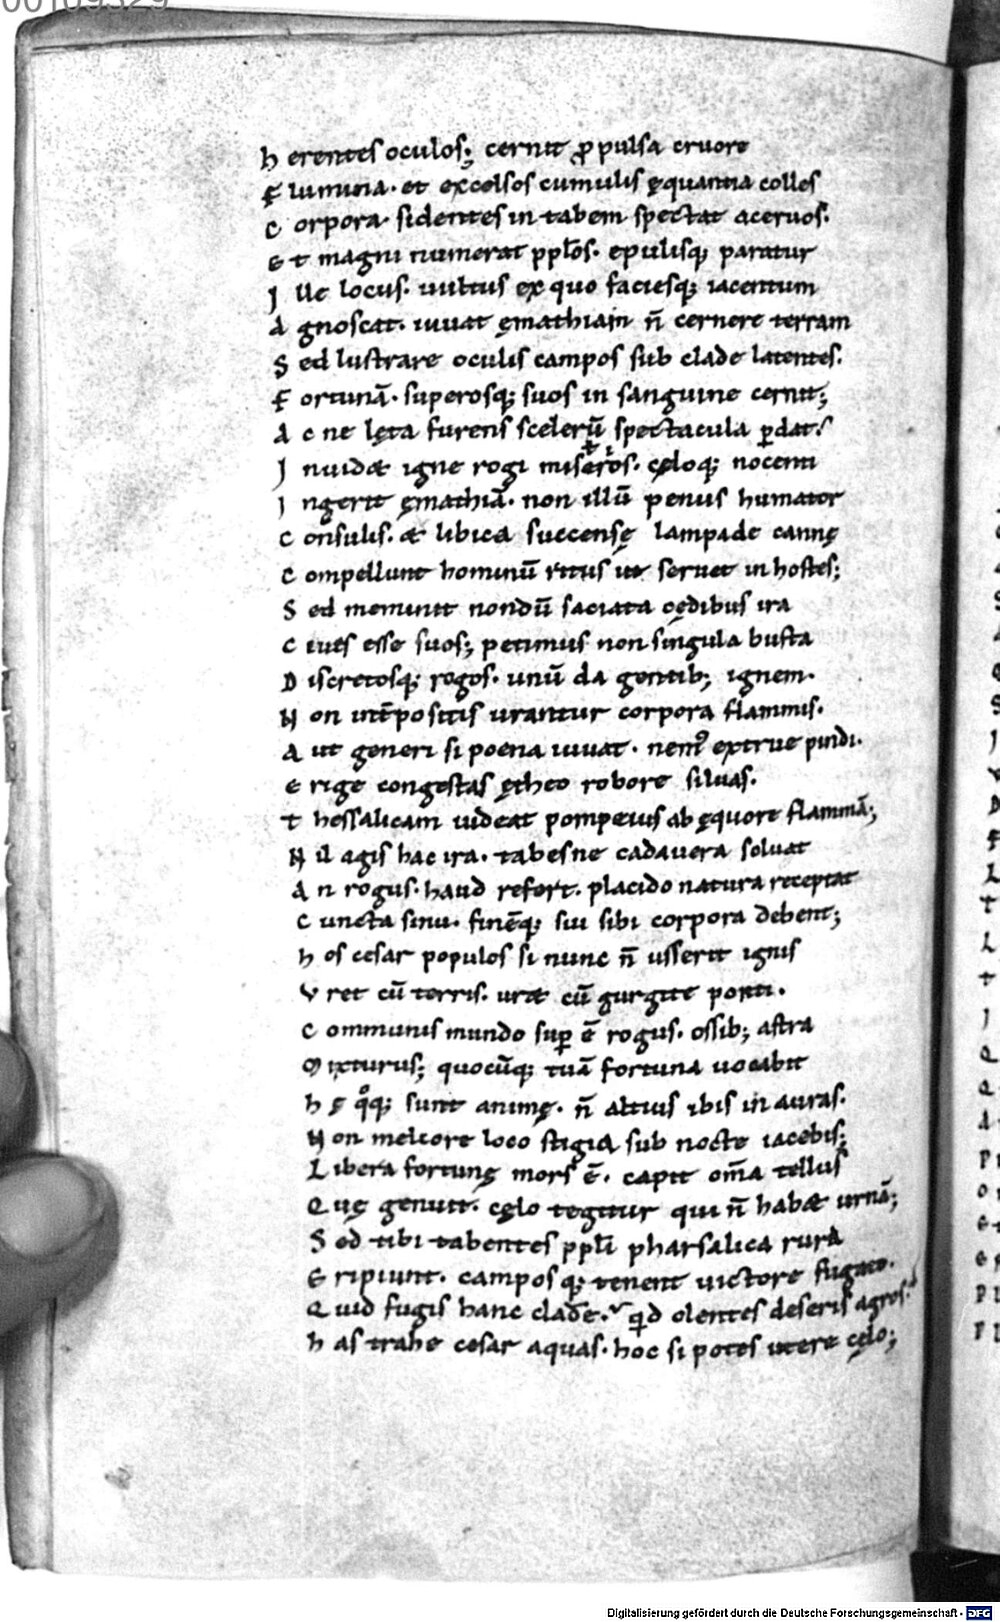 00109329
h erentes oculos; cernit ꝓpulsa cruore
F lumina· et excelsos cumulis ęquantia colles
C orpora· sidentes in tabem spectat aceruos·
E t magni numerat ppłos· epulisq; paratur
I lle locus· uultus ex quo faciesq; iacentum
A gnoscat· iuuat ęmathiam n̄ cernere terram
S ed lustrare oculis campos sub clade latentes·
F ortunā· superosq; suos in sanguine cernit;
A c ne lęta furens scelerū spectacula ꝑdat·
I nuidet igne rogi miseros· cęloq; nocenti
I ngerit ęmathiā· non illū penus humator
C onsulis· & libica succensę lampade cannę
C ompellunt hominū ritus ut seruet in hostes;
S ed meminit nondū saciata cędibus ira
C iues esse suos; petimus non singula busta
D iscretosq; rogos· unū da gentib; ignem·
N on int̄positis urantur corpora flammis·
A ut generi si poena iuuat· nem᷒ extrue pindi·
E rige congestas ętheo robore siluas·
T hessalicam uideat pompeius ab ęquore flammā;
N il agis hac ira· tabesne cadauera soluat
A n rogus· haud refert· placido natura receptat
C uncta sinu· finēq; sui sibi corpora debent;
h os cesar populos si nunc n̄ usserit ignis
V ret cū terris· uret cū gurgite ponti·
C ommunis mundo suꝑ ē rogus· ossib; astra
M ixturus; quocūq; tuā fortuna uocabit
h ę qͦq; sunt animę· n̄ altius ibis in auras·
N on meliore loco stigia sub nocte iacebis;
L ibera fortunę mors ē· capit om̄a tellus
Q uę genuit· cęlo tegitur qui n̄ habet urnā;
S ed tibi tabentes ppłi pharsalica rura
E ripiunt· camposq; tenent uictore fugato·
Q uid fugis hanc clade· qid olentes deseris agros·
h as trahe cesar aquas· hoc si potes utere cęlo;
Digitalisierung gefördert durch die Deutsche Forschungsgemeinschaft - DFG